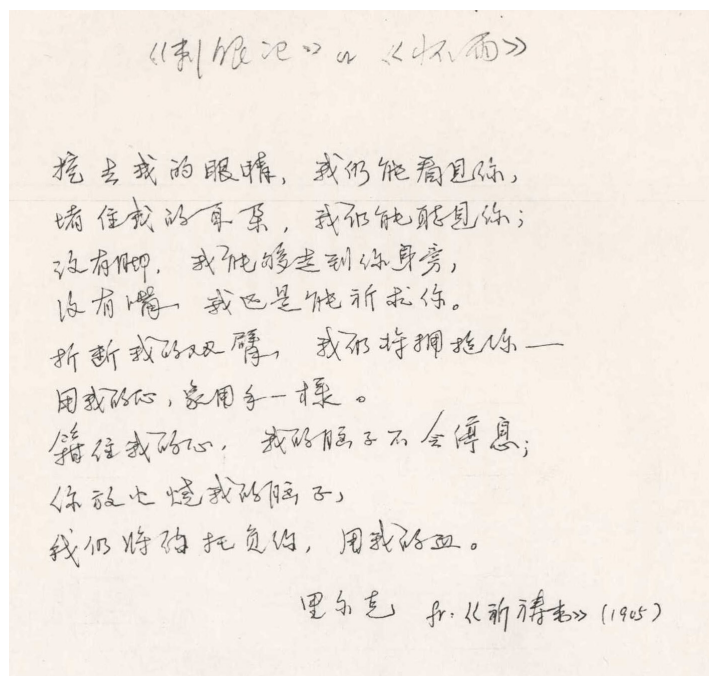 《刺眼记》or《怀雨》
挖去我的眼睛，我仍能看见你，
堵住我的耳朵，我仍能听见你；
没有脚，我能够走到你身旁，
没有嘴，我也是能祈求你。
折断我的双臂，我仍将拥抱你——
用我的心，象用手一样。
箝住我的心，我的脑子不会停息；
你放火烧我的脑子，
我仍将托负你，用我的血。
里尔克 fr.《祈祷书》(1905)